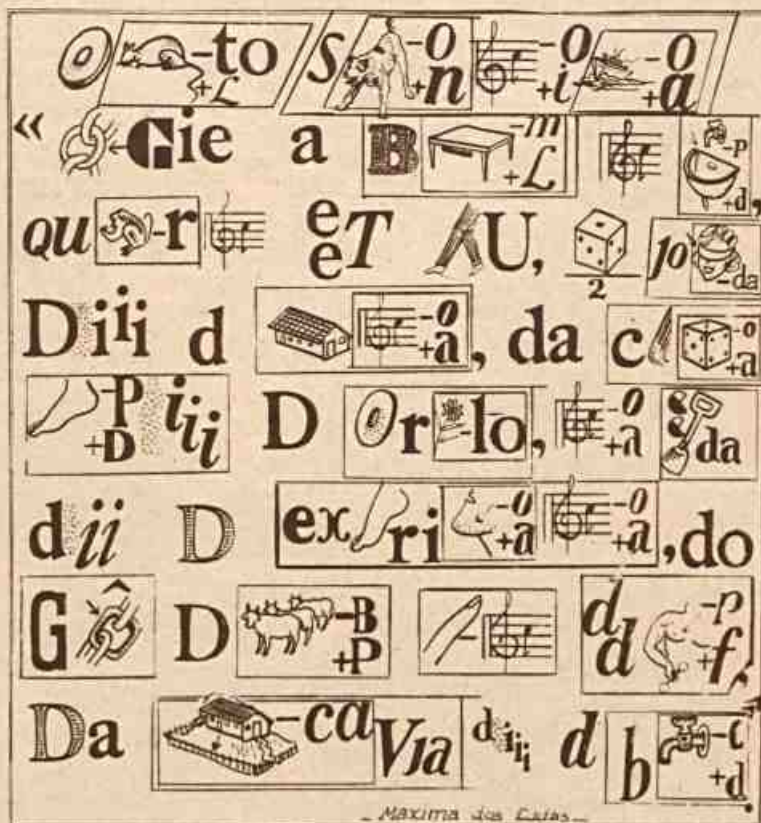 -to +L / S -O +n -O +i -O +a
« Gie a B -m +L -p +d,
QU -r e e T U, 2 po -da
D iii d -o +a, da c -o +a
-P +D iii D r -lo, -o +a da
d ii D ex ri -o +a -o +a, do
G ^ D -B +P - d d -p +f,
Da -ca Via d iii d b -c +d.
_ Maxima dos